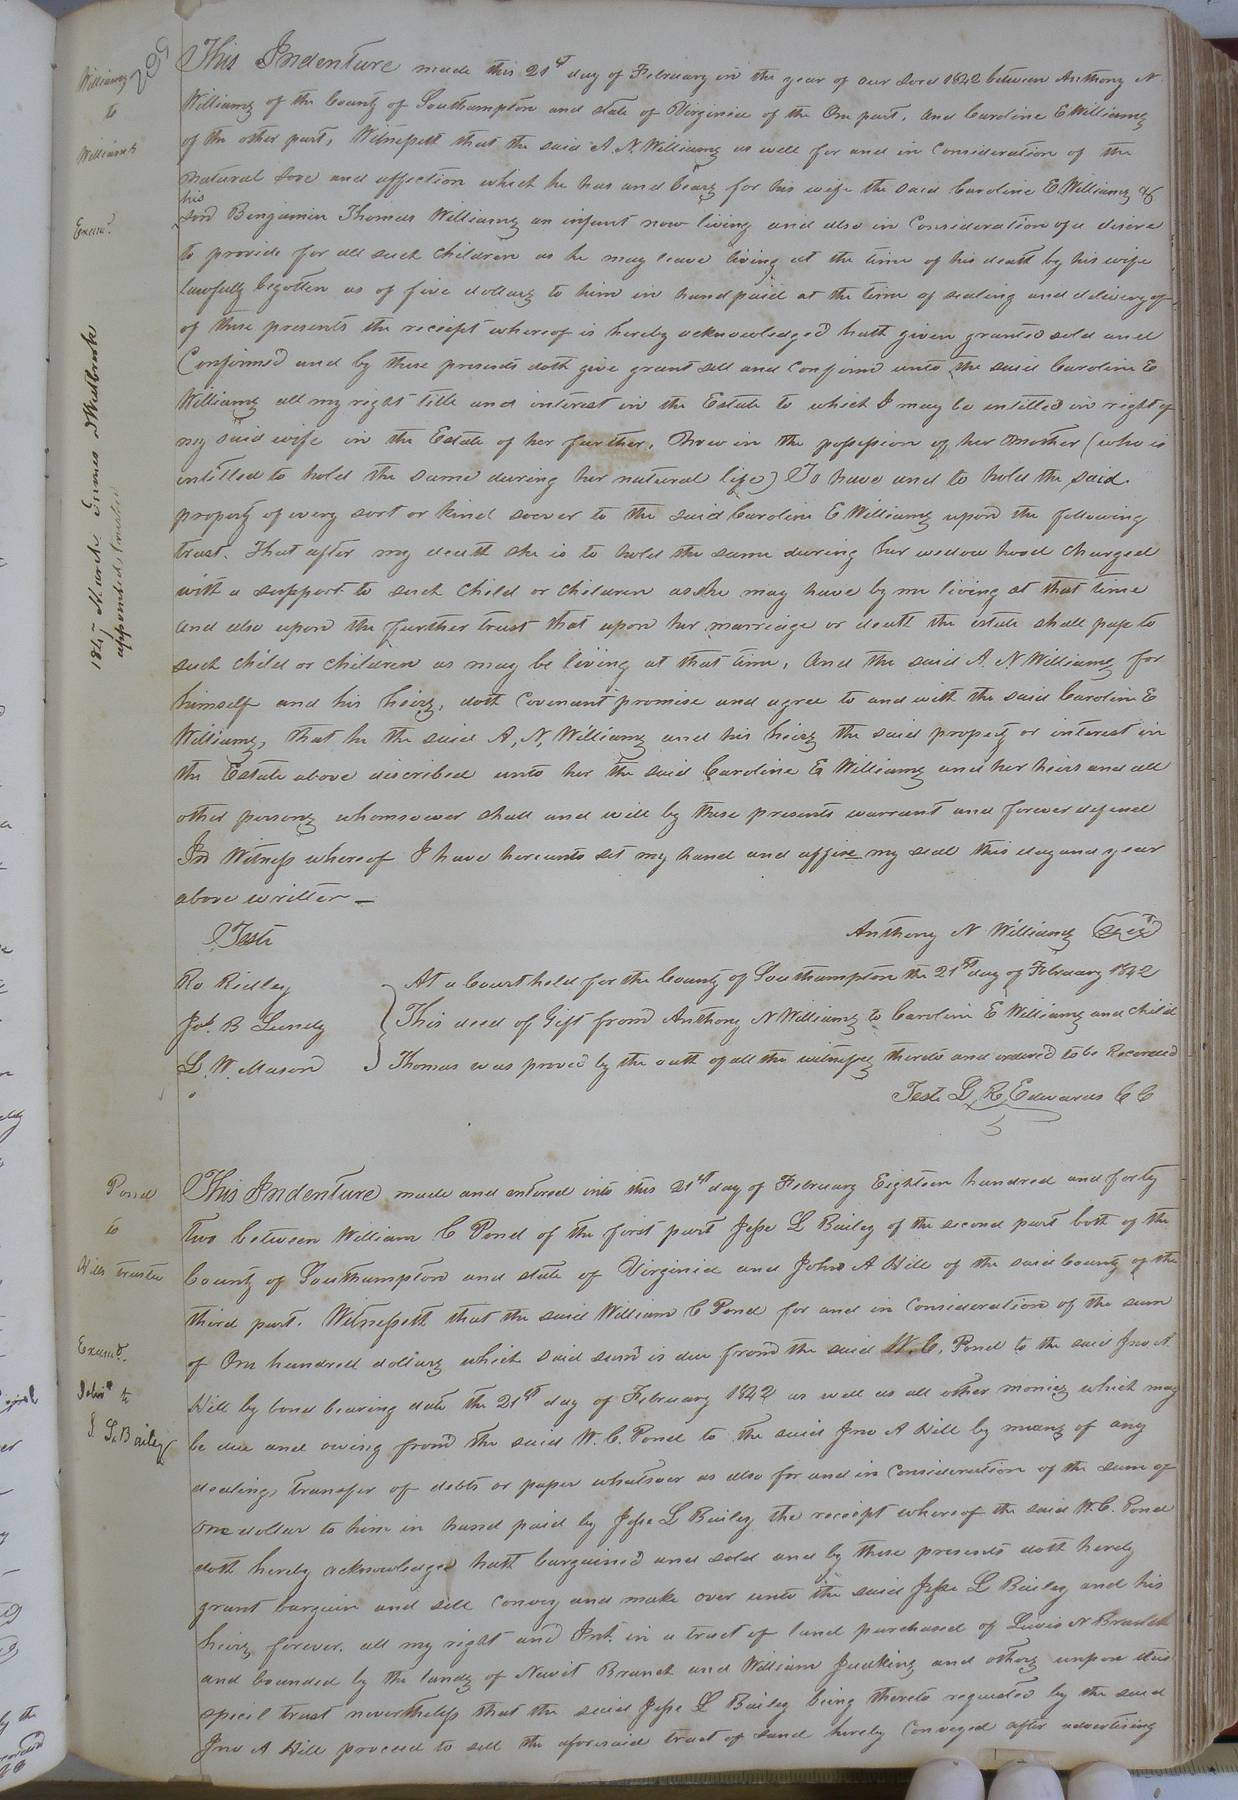 299
Williams
to
Williams
Exam.d
184 March James Westbrook
appointed trustee
This Indenture made this 21st day of February in the year of our Lord 1842 between Anthony N
Williams of the County of Southampton and state of Virginia of the One part, and Caroline E Williams
of the other part, Witnesseth that the said A. N. Williams as well for and in Consideration of the
natural love and affection which he has and bears for his wife the said Caroline E. Williams &
his
son Benjamin Thomas Williams an infant now living and also in Consideration of a desire
to provide for all such children as he may leave living at the time of his death by his wife
lawfully begotten as of five dollars to him in hand paid at the time of sealing and delivery of
of these presents the receipt whereof is hereby acknowledged hath given granted sold and
Confirmed and by these presents doth give grant sell and confirm unto the said Caroline E
Williams all my right title and interest in the Estate to which I may be intitled in right of
my said wife in the Estate of her further, Now in the possession of her Mother (who is
intitled to hold the same during her natural life) To have and to hold the said
property of every sort or kind soever to the said Caroline E Williams upon the following
trust. That after my death she is to hold the same during her widow hood charged
with a support to such child or children as she may have by me living at that time
and also upon the further trust that upon her marriage or death the estate shall pass to
such child or children as may be living at that time, And the said A. N Williams for
himself and his heirs, doth Covenant promise and agree to and with the said Caroline E
Williams, that he the said A, N, Williams and his heirs the said property or interest in
the Estate above described unto her the said Caroline E Williams and her heirs and all
other persons whomsoever shall and will by these presents warrant and forever defend
In Witness whereof I have hereunto set my hand and affixe my seal this day and year
above written —
Teste
Anthony N Williams Seal
Ro Ridley
Jos. B Lundy
L. W. Mason
At a Court held for the County of Southampton the 21st day of February 1842
This deed of Gift from Anthony N Williams to Caroline E Williams and child
Thomas was proved by the oath of all the witnesses thereto and ordered to be Recorded
Teste L R Edwards C C
Pond
to
Hills trustee
Examd.
Deliv.d to
J. L. Bailey
This Indenture made and entered into this 21st day of February Eighteen hundred and forty
two between William C Pond of the first part Jesse L Bailey of the second part both of the
County of Southampton and state of Virginia and John A Hill of the said County of the
third part. Witnesseth that the said William C Pond for and in Consideration of the sum
of One hundred dollars which said sum is due from the said W. C. Pond to the said Jno A
Hill by bond bearing date the 21st day of February 1842 as well as all other monies which may
be due and owing from the said W. C. Pond to the said Jno A Hill by means of any
dealing, transfer of debts or paper whatsoever as also for and in consideration of the sum of
one dollar to him in hand paid by Jesse L Bailey the receipt whereof the said W. C. Pond
doth hereby acknowledged hath bargained and sold and by these presents doth hereby
grant bargain and sell convey and make over unto the said Jesse L Bailey and his
heirs forever. all my right and Int. in a tract of land purchased of Lewis N Branch
and bounded by the lands of Newit Branch and William Judkins and others unpon this
specil trust nevertheless that the said Jesse L Bailey being thereto requested by the said
Jno A Hill proceed to sell the aforesaid tract of Land hereby conveyed after advertising